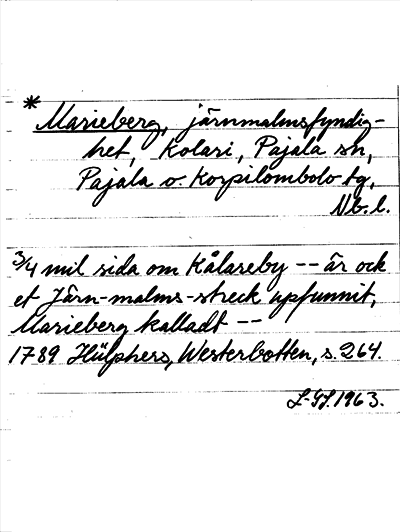 *
Marieberg, järnmalmsfyndig-
het, Kolari, Pajala sn,
Pajala o. Korpilombolo tg,
Nb. l.
3/4 mil sida om Kålareby -- är ock
et Järn-malms-streck upfunnit,
Marieberg kalladt --
1789 Hülphers, Westerbotten, s. 264.
L-GL. 1963.